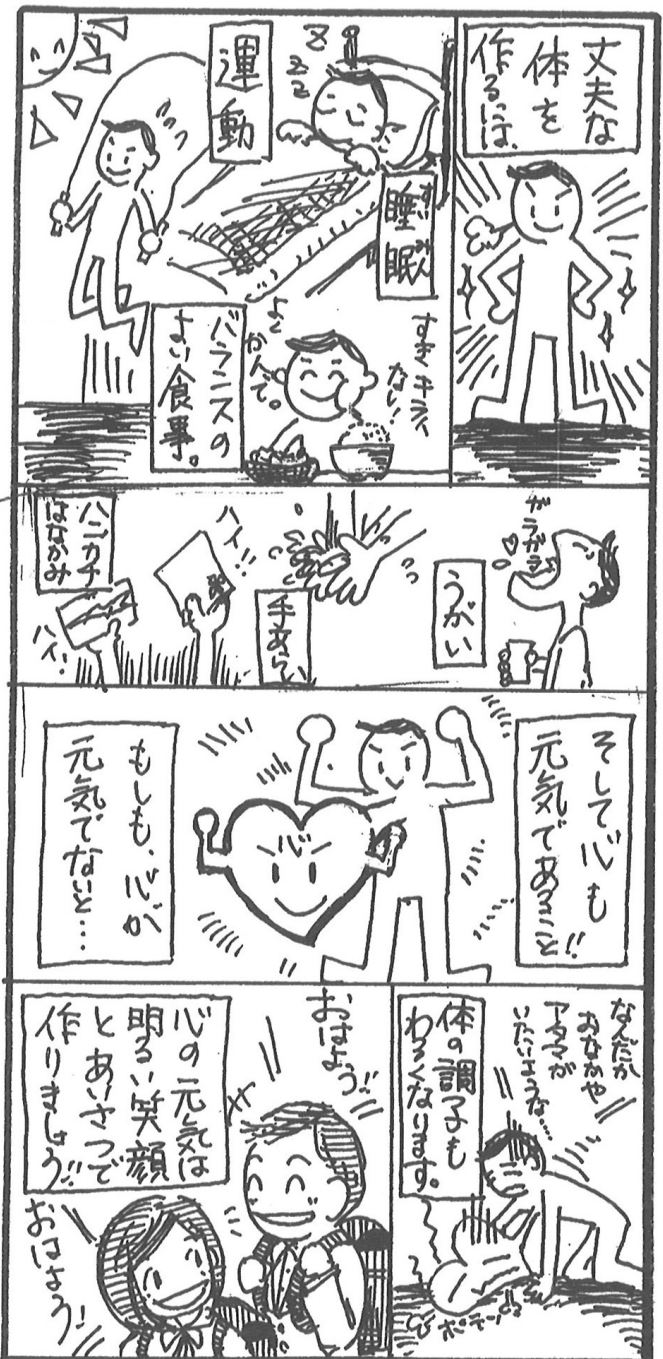 丈夫な
体を
作るには、
すい みん
睡眠
運動
z
z
z
z
すきキライ
ない!
よく
かんで。
バランスの
よい食事。
ガラガラ
うがい
手あらい
ハイ!!
ハンカチ
はながみ
ハイ!
そして心も
元気であること!!
心
もしも、心が
元気でないと…
なんだか
おなかや
アタマが
いたいような…
体の調子も
わるくなります。
ポテン
おはよう!!
心の元気は
明るい笑顔
とあいさつで
作りましょう!!
おはよう!